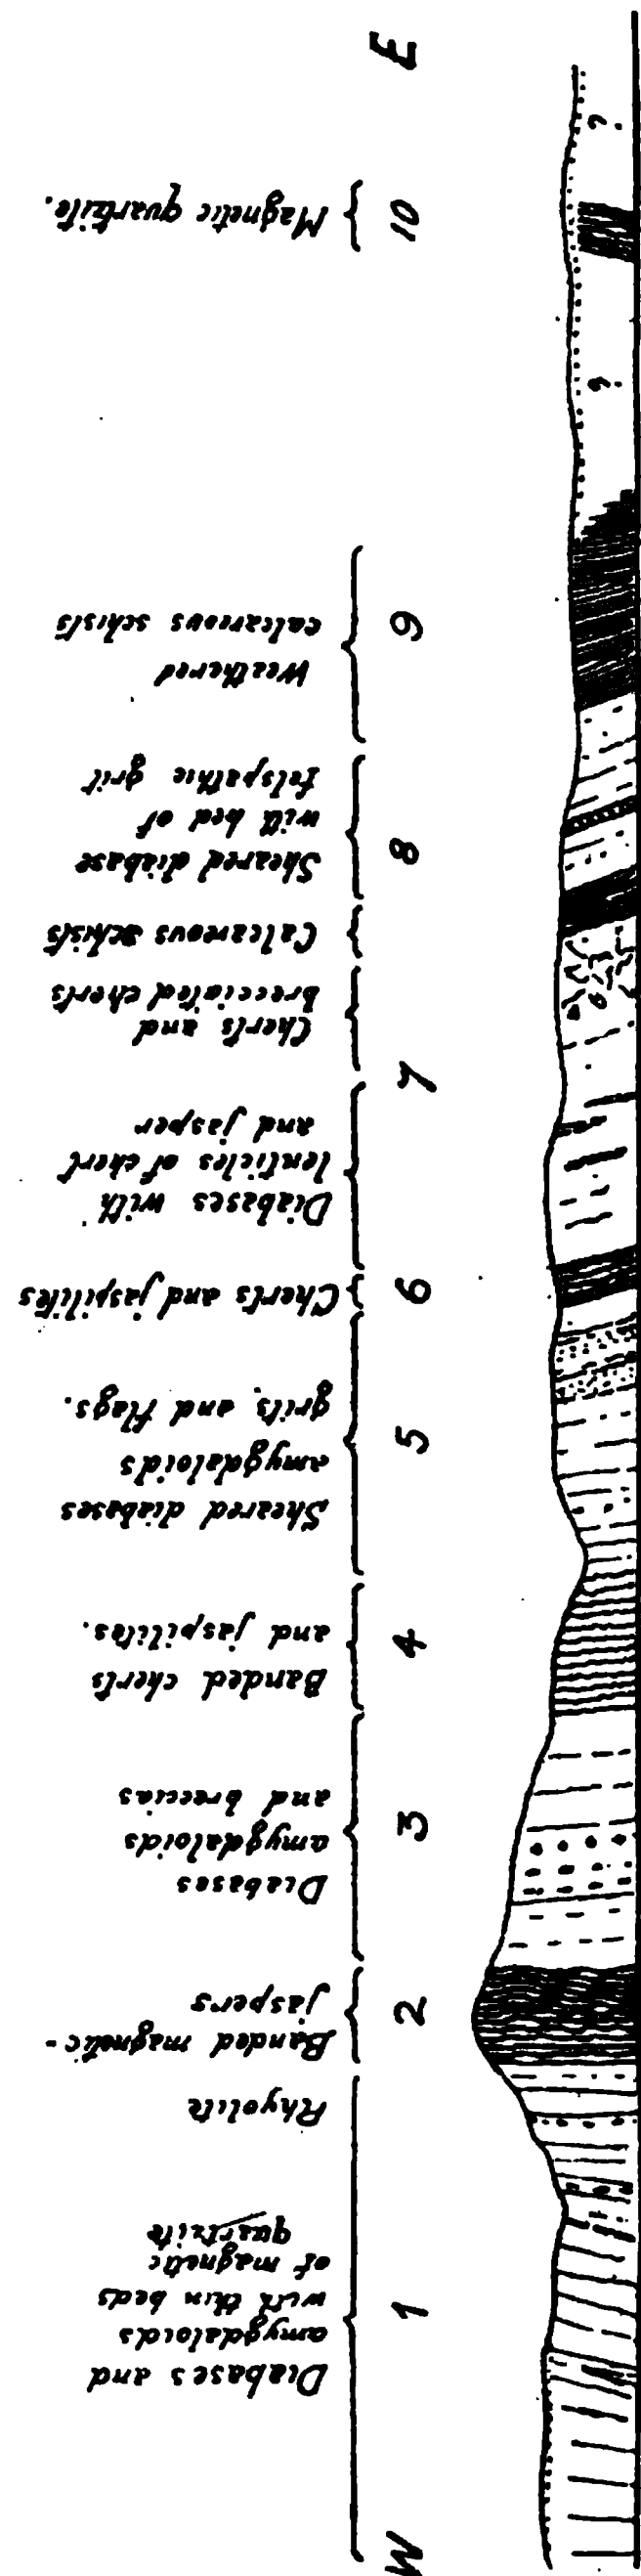 Diabases and
amygdaloids
with thin beds
of magnetic
quartzite
Rhyolite
Banded magnetic-
jaspers
Diabases
amygdaloids
and breccias
Banded cherts
and jaspilites.
Sheared diabases
amygdaloids
grits, and flags.
Cherts and jaspilites
Diabases with
lenticles of chert
and jasper
Cherts and
brecciated cherts
Calcareous schists
Sheared diabase
with bed of
felspathic grit
Weathered
calcareous schists
Magnetic quartzite.
W 1 2 3 4 5 6 7 8 9 10 E
? ?